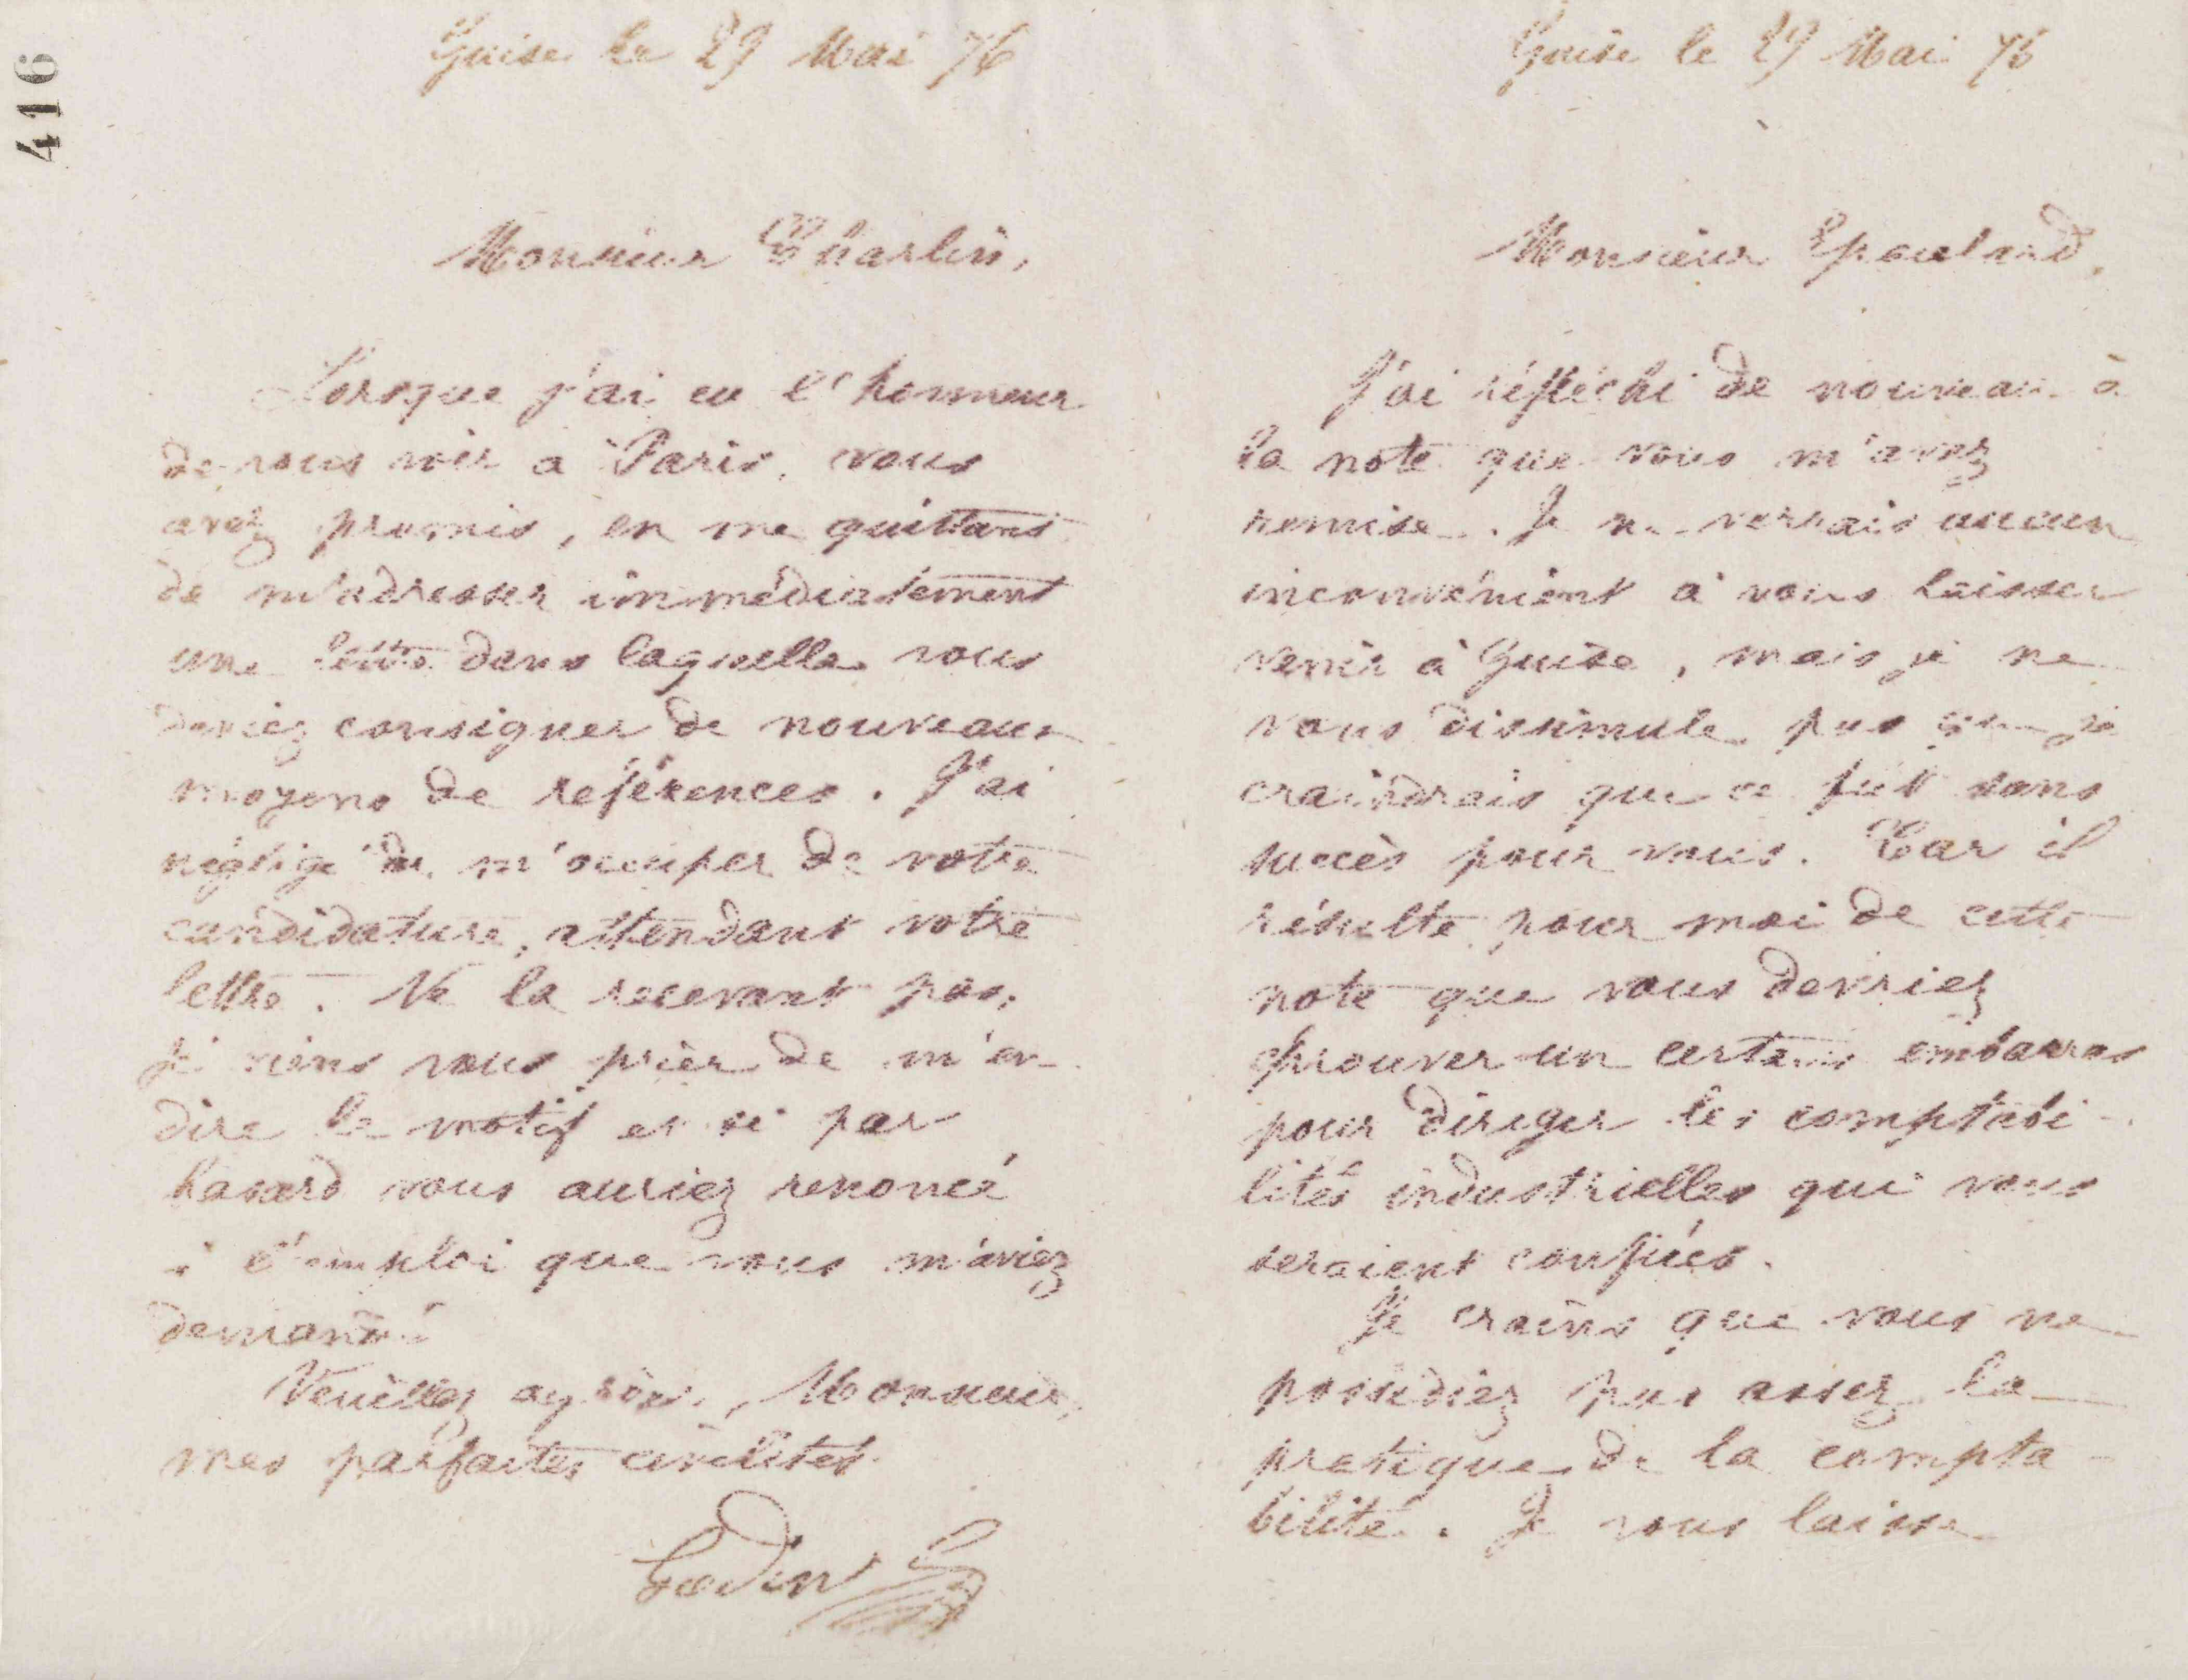 416
Guise le 29 Mai 76
Monsieur Charlin,
Lorsque j'ai eu l'honneur
de vous voir à Paris, vous
avez promis, en me quittant
de m'adresser immédiatement
une lettre dans laquelle vous
deviez consigner de nouveaux
moyens de références. J'ai
négligé de m'occuper de votre
candidature, attendant votre
lettre. Ne la recevant pas,
je viens vous prier de m'en
dire le motif et si par
hasard vous auriez renoncé
à l'emploi que vous m'aviez
demandé.
Veuillez agréer, Monsieur,
mes parfaites civilités.
Godin
Guise le 29 Mai 76
Monsieur Epaulard,
J'ai réfléchi de nouveau à
la note que vous m'avez
remise. Je ne verrais aucun
inconvénient à vous laisser
venir à Guise, mais je ne
vous dissimule pas que je
craindrais que ce fut sans
succès pour vous. Car il
résulte pour moi de cette
note que vous devriez
éprouver un certain embarras
pour diriger les comptabi-
lités industrielles qui vous
seraient confiées.
Je crains que vous ne
possédiez pas assez la
pratique de la compta-
bilité. Je vous laisse